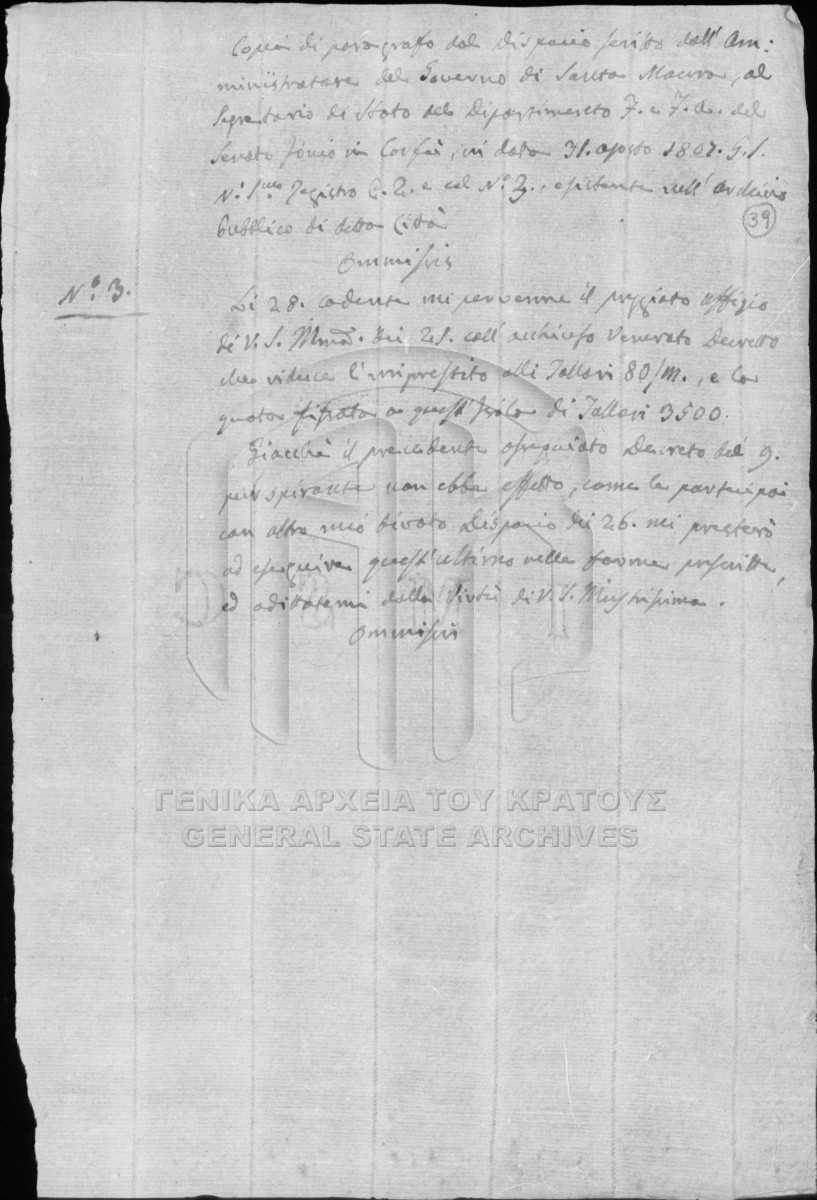 Copia di paragrafo del Dispacio scritto dall' Am:
ministratore del Governo di Santa Maura, al
Segretario di Stato del Dipartimento
Senato Jonio in Corfù, in data 31. agosto 1807. S. V.
Registro e col Nº 3., esistente nell' archivio
39
Pubblico di detta Città
Ommissis
Nº 3.
Li 28. cadente mi pervenne il preggiato uffizio
di V. S. Illma. dei 25. coll' acchiuso Venerato Decretto
che riduce l'imprestito alli Tallari 80/m., e la
quota fissata a quest' Isola di Tallari 3500.
Giacchè il precedente ossequiato Decreto del 9.
pur spirante non ebbe effetto, come le partecipai
con altro mio divoto Dispacio dei 26. mi presterò
ad eseguire quest'ultimo nelle forme prescritte,
ed additatemi dalla Virtù di V. S. Illustrissima.
Ommissis
ΓΕΝΙΚΑ ΑΡΧΕΙΑ ΤΟΥ ΚΡΑΤΟΥΣ
GENERAL STATE ARCHIVES